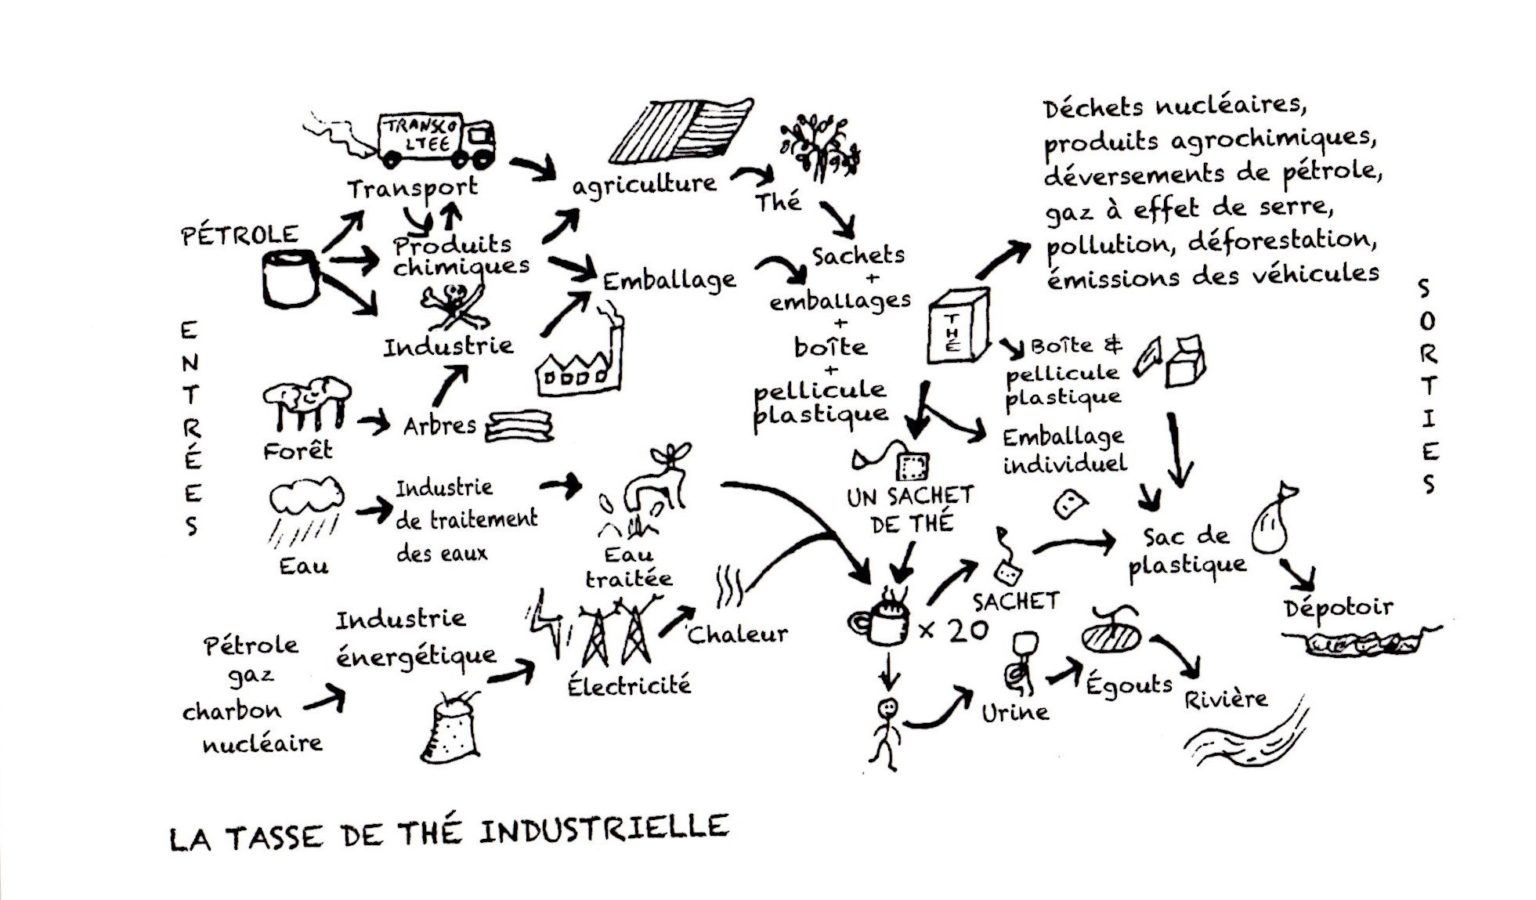 TRANSCO
LTÉE
Transport
agriculture
Thé
PÉTROLE
Produits
chimiques
Emballage
Industrie
Forêt
Arbres
Eau
Industrie
de traitement
des eaux
Eau
traitée
Pétrole
gaz
charbon
nucléaire
Industrie
énergétique
Électricité
Chaleur
ENTRÉES
Sachets
+
emballages
+
boîte
+
pellicule
plastique
THÉ
Déchets nucléaires,
produits agrochimiques,
déversements de pétrole,
gaz à effet de serre,
pollution, déforestation,
émissions des véhicules
Boîte &
pellicule
plastique
Emballage
individuel
UN SACHET
DE THÉ
SACHET
x 20
Sac de
plastique
Dépotoir
Urine
Égouts
Rivière
SORTIES
LA TASSE DE THÉ INDUSTRIELLE